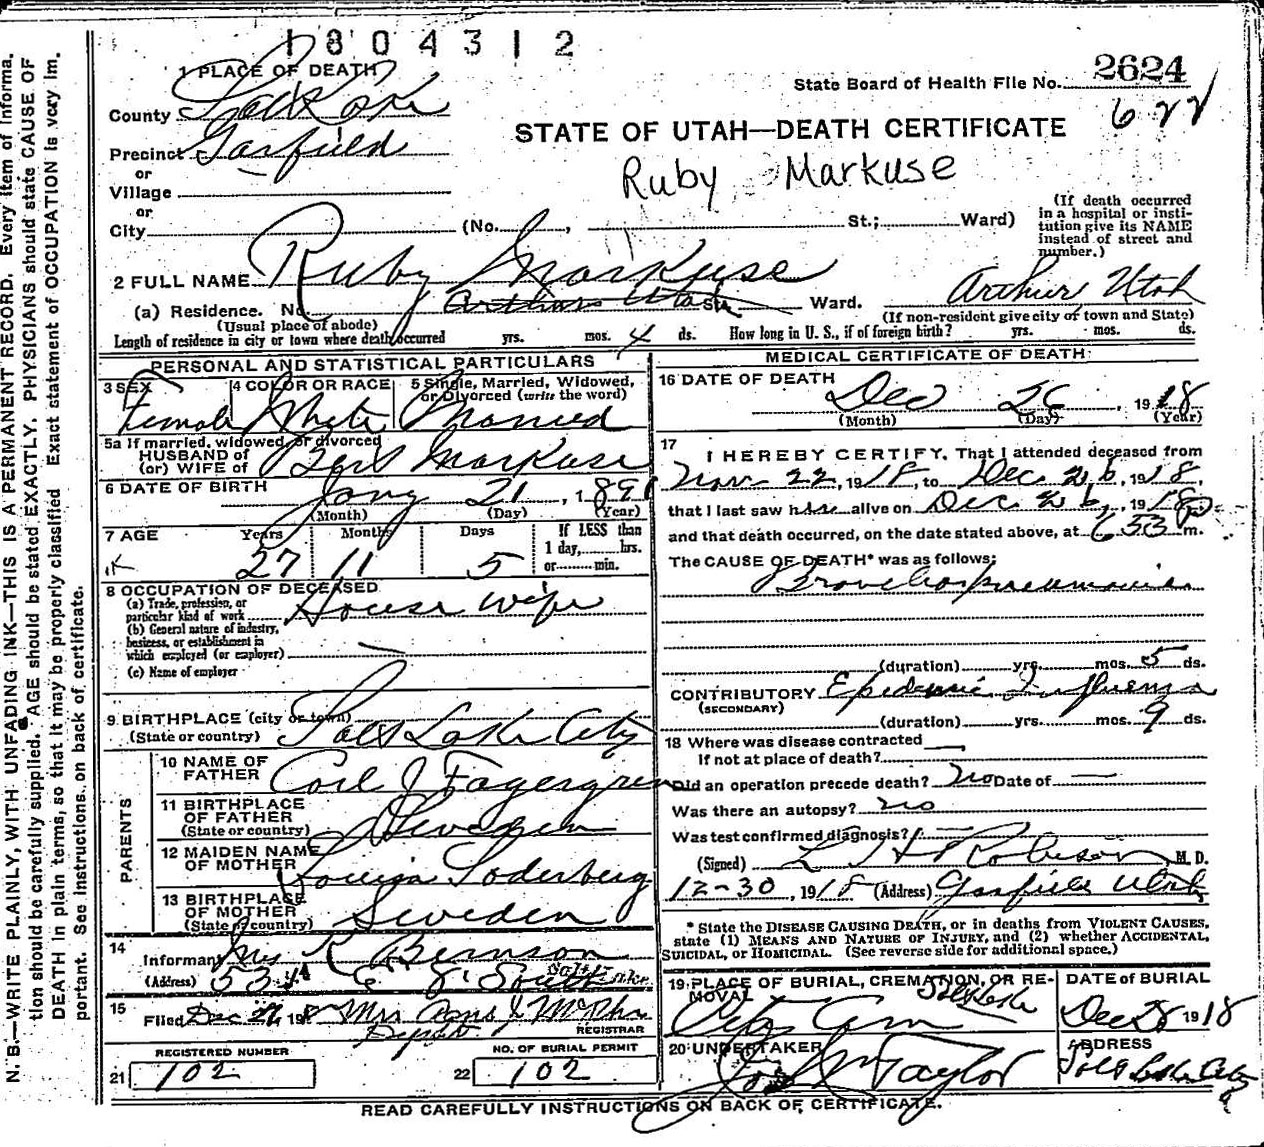 1804312
1 PLACE OF DEATH
State Board of Health File No. 2624
622
County Salt Lake
STATE OF UTAH—DEATH CERTIFICATE
Precinct Garfield
or
Village
Ruby Markuse
or
City (No. , St.; Ward)
(If death occurred in a hospital or insti-
tution give its NAME
instead of street and
number.)
2 FULL NAME Ruby Markuse
(a) Residence. No. Arthur Utah St. Ward. Arthur Utah
(Usual place of abode) (If non-resident give city or town and State)
Length of residence in city or town where death occurred yrs. mos. 4 ds. How long in U. S., if of foreign birth? yrs. mos. ds.
PERSONAL AND STATISTICAL PARTICULARS
3 SEX Female
4 COLOR OR RACE White
5 Single, Married, Widowed,
or Divorced (write the word)
Married
5a If married, widowed, or divorced
HUSBAND of
(or) WIFE of Markuse
6 DATE OF BIRTH Jany 21, 1891
(Month) (Day) (Year)
7 AGE Years Months Days If LESS than
1 day, hrs.
or min.
27 11 5
8 OCCUPATION OF DECEASED
(a) Trade, profession, or
particular kind of work House wife
(b) General nature of industry,
business, or establishment in
which employed (or employer)
(c) Name of employer
9 BIRTHPLACE (city or town)
(State or country) Salt Lake City
PARENTS
10 NAME OF
FATHER Carl J Fagergren
11 BIRTHPLACE
OF FATHER
(State or country) Sweden
12 MAIDEN NAME
OF MOTHER Louisa Soderberg
13 BIRTHPLACE
OF MOTHER
(State or country) Sweden
14 Informant Mrs Bernson
(Address) 534 E 8 South Salt Lake
15 Filed Dec 26, 1918 Mrs J McPhie
Deputy REGISTRAR
REGISTERED NUMBER NO. OF BURIAL PERMIT
21 102 22 102
MEDICAL CERTIFICATE OF DEATH
16 DATE OF DEATH
Dec 26, 1918
(Month) (Day) (Year)
17 I HEREBY CERTIFY, That I attended deceased from
Nov 22, 1918, to Dec 26, 1918,
that I last saw her alive on Dec 26, 1918
and that death occurred, on the date stated above, at 653 P m.
The CAUSE OF DEATH* was as follows:
Broncho pneumonia
(duration) yrs. mos. 5 ds.
CONTRIBUTORY Epidemic Influenza
(SECONDARY)
(duration) yrs. mos. 9 ds.
18 Where was disease contracted
If not at place of death?
Did an operation precede death? No Date of —
Was there an autopsy? no
Was test confirmed diagnosis? —
(Signed) L H Robinson M. D.
12-30, 1918 (Address) Garfield Utah
* State the DISEASE CAUSING DEATH, or in deaths from VIOLENT CAUSES,
state (1) MEANS AND NATURE OF INJURY, and (2) whether ACCIDENTAL,
SUICIDAL, or HOMICIDAL. (See reverse side for additional space.)
19 PLACE OF BURIAL, CREMATION, OR RE-
MOVAL Salt Lake
City Cem
DATE OF BURIAL
Dec 28 1918
20 UNDERTAKER
Jos Wm Taylor
ADDRESS
Salt Lake City
READ CAREFULLY INSTRUCTIONS ON BACK OF CERTIFICATE.
N. B.—WRITE PLAINLY, WITH UNFADING INK—THIS IS A PERMANENT RECORD. Every item of informa-
tion should be carefully supplied. AGE should be stated EXACTLY. PHYSICIANS should state CAUSE OF
DEATH in plain terms, so that it may be properly classified. Exact statement of OCCUPATION is very im-
portant. See instructions on back of certificate.